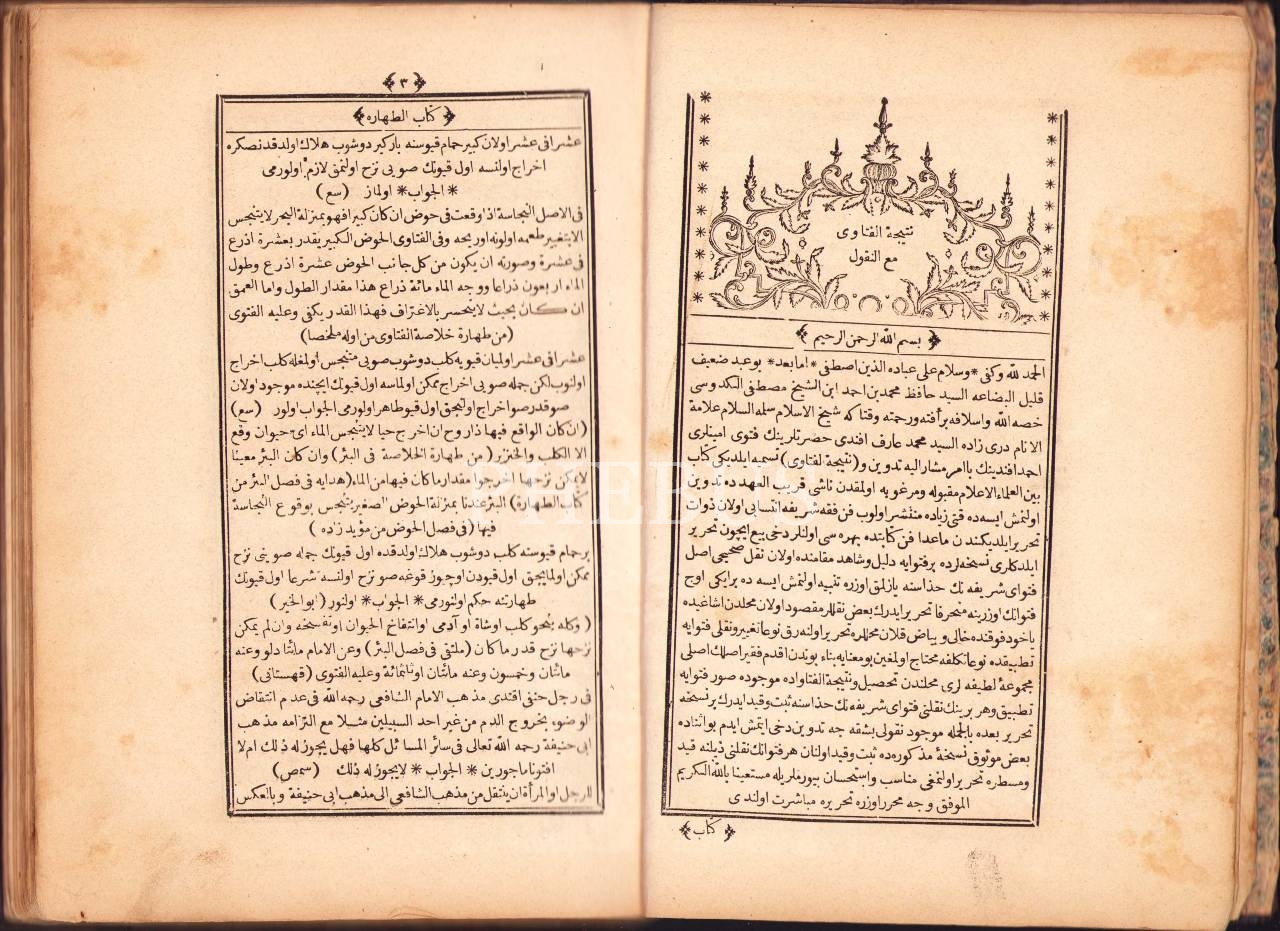 نتيجة الفتاوى
مع النقول
بسم الله الرحمن الرحيم
الحمد لله وكفى * وسلام على عباده الذين اصطفى * اما بعد * بو عبد ضعيف
قليل البضاعه السيد حافظ محمد بن احمد ابن الشيخ مصطفى الكدوسى
خصه الله واسلافه برأفته ورحمته وقتا كه شيخ الاسلام سلمه السلام علامة
الانام درى زاده السيد محمد عارف افندى حضرتلرينك فتوى امينلرى
احمد افندينك باامر مشار اليه تدوين و (نتيجة الفتاوى) تسميه ايلديكى كتاب
بين العلماء الاعلام مقبوله ومرغوبه اولمقدن ناشى قريب العهدده تدوين
اولنمش ايسه ده قتى زياده منتشر اولوب فن فقه شريفه انتسابى اولان ذوات
تحرير ايلديكندن ماعدا فن كتابتده بهره سى اولنلر دخى بيع ايچون تحرير
ايلدكلرى نسخه لرده بر فتوايه دليل وشاهد مقامنده اولان نقل صحيحى اصل
فتواى شريفه نك حذاسنه يازلمق اوزره تنبيه اولنمش ايسه ده بر ايكى اوج
فتوانك اوزرينه منحرفا تحرير ايدرك بعض نقللر مقصود اولان محلدن اشاغيده
ياخود فوقنده خالى وبياض قلان محللره تحرير اولنه رق نوعا تغيير ونقلى فتوايه
تطبيقده نوعا تكلفه محتاج اولمغين بو معنايه بناء بوندن اقدم فقير اصلك اصلى
مجموعۀ لطيفه لرى محلندن تحصيل ونتيجة الفتاواده موجوده صور فتوايه
تطبيق وهر برينك نقلنى فتواى شريفه نك حذاسنه ثبت وقيد ايدرك بر نسخه
تحرير بعده بالجمله موجود نقولى بشقه جه تدوين دخى ايتمش ايدم بو اثناده
بعض موثوق نسخۀ مذكوره ده ثبت وقيد اولنان هر فتوانك نقلنى ذيلنه قيد
ومسطره تحرير اولنمغى مناسب واستحسان بيورملريله مستعينا بالله الكريم
الموفق وجه محرر اوزره تحريره مباشرت اولندى
كتاب
٣
كتاب الطهاره
عشرا فى عشر اولان كبير حمام قيوسنه باركير دوشوب هلاك اولدقدنصكره
اخراج اولنسه اول قيونك صويى نزح اولنمق لازم اولورمى
* الجواب * اولماز (سع)
فى الاصل النجاسة اذا وقعت فى حوض ان كان كبيرا فهو بمنزلة البحر لا يتنجس
الا بتغيير طعمه اولونه اوريحه وفى الفتاوى الحوض الكبير يقدر بعشرة اذرع
فى عشرة وصورته ان يكون من كل جانب الحوض عشرة اذرع وطول
الماء اربعون ذراعا ووجه الماء مائة ذراع هذا مقدار الطول واما العمق
ان كان بحيث لا ينحسر بالاغتراف فهذا القدر يكفى وعليه الفتوى
(من طهارة خلاصة الفتاوى من اوله ملخصا)
عشرا فى عشر اولميان قيويه كلب دوشوب صويى متنجس اولمغله كلب اخراج
اولنوب لكن جمله صويى اخراج ممكن اولماسه اول قيونك ايچنده موجود اولان
صو قدر صو اخراج اولنيجق اول قيو طاهر اولورمى الجواب اولور (سع)
(ان كان الواقع فيها ذا روح ان اخرج حيا لا يتنجس الماء اى حيوان وقع
الا الكلب والخنزير (من طهارة الخلاصة فى البئر) وان كان البئر معينا
لا يمكن نزحها اخرجوا مقدار ما كان فيها من الماء (هدايه فى فصل البئر من
كتاب الطهارة) البئر عندنا بمنزلة الحوض الصغير يتنجس بوقوع النجاسة
فيها (فى فصل الحوض من مؤيد زاده)
بر حمام قيوسنه كلب دوشوب هلاك اولدقده اول قيونك جمله صوينى نزح
ممكن اولمايجق اول قيودن اوچيوز قوغه صو نزح اولنسه شرعا اول قيونك
طهارتنه حكم اولنورمى * الجواب * اولنور (ابو الخير)
(وكله بنحو كلب او شاة او آدمى او انتفاخ الحيوان او تفسخه وان لم يمكن
نزحها نزح قدر ما كان (ملتقى فى فصل البئر) وعن الامام مائتا دلو وعنه
مائتان وخمسون وعنه مائتان او ثلثمائة وعليه الفتوى (قهستانى)
فى رجل حنفى اقتدى مذهب الامام الشافعى رحمه الله فى عدم انتقاض
الوضوء بخروج الدم من غير احد السبيلين مثلا مع التزامه مذهب
ابى حنيفة رحمه الله تعالى فى سائر المسائل كلها فهل يجوز له ذلك ام لا
افتونا ماجورين * الجواب * لا يجوز له ذلك (سمص)
للرجل او المرأة ان ينتقل من مذهب الشافعى الى مذهب ابى حنيفة وبالعكس